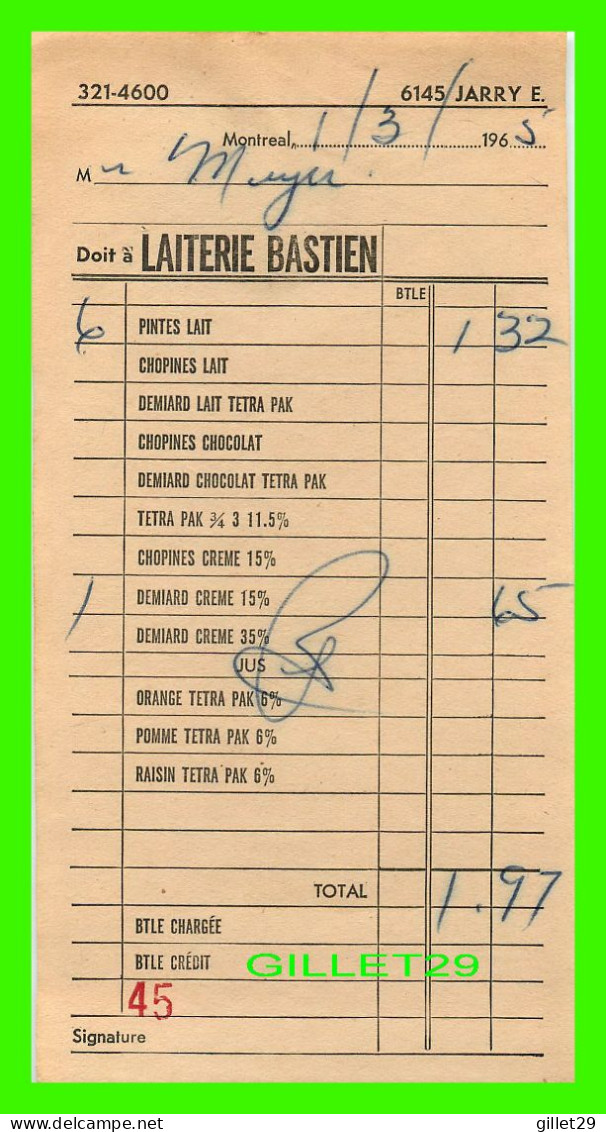 321-4600 6145 JARRY E.
Montreal, 1/3/ 1965
Mr Meyer.
Doit à LAITERIE BASTIEN
BTLE
6 PINTES LAIT 1 32
CHOPINES LAIT
DEMIARD LAIT TETRA PAK
CHOPINES CHOCOLAT
DEMIARD CHOCOLAT TETRA PAK
TETRA PAK ¾ 3 11.5%
CHOPINES CREME 15%
1 DEMIARD CREME 15% 65
DEMIARD CREME 35%
JUS
ORANGE TETRA PAK 6%
POMME TETRA PAK 6%
RAISIN TETRA PAK 6%
TOTAL 1.97
BTLE CHARGÉE
BTLE CRÉDIT GILLET29
45
Signature
delcampe.net gillet29